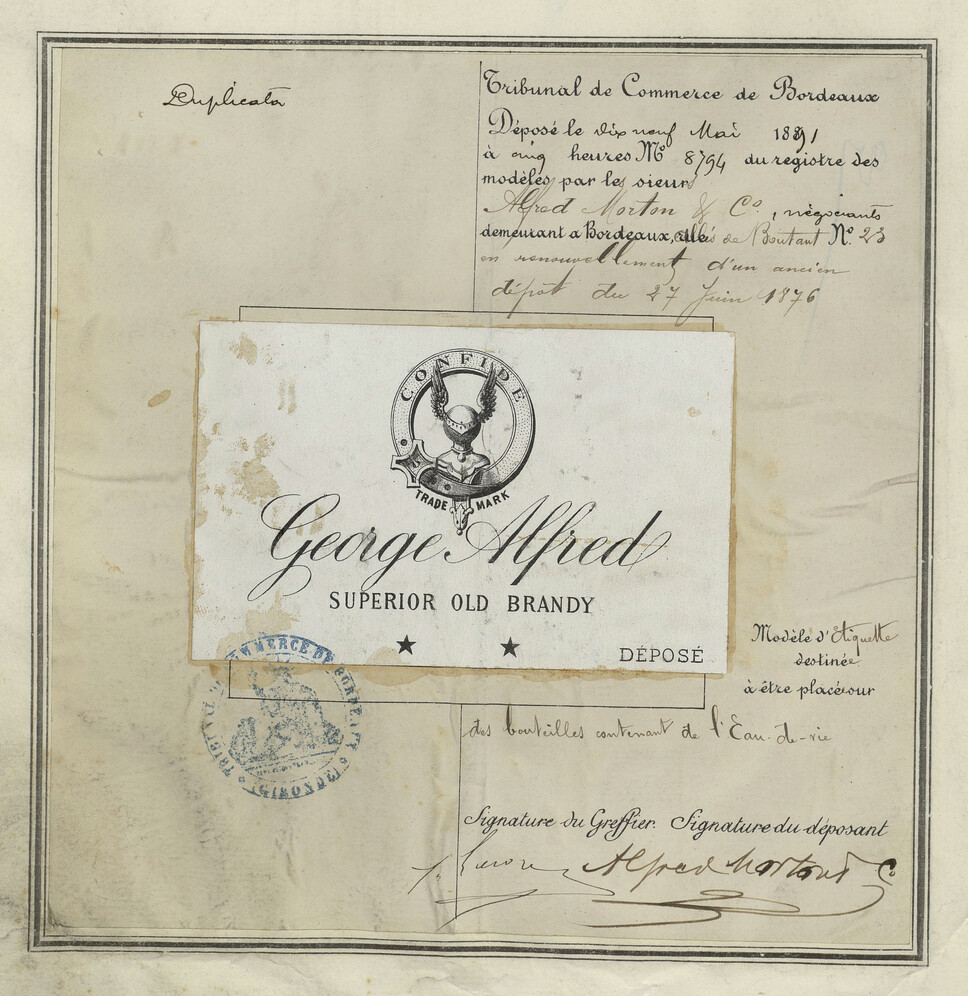 Duplicata
Tribunal de Commerce de Bordeaux
Déposé le dix neuf Mai 1891
à cinq heures No 8794 du registre des
modèles par les sieurs
Alfred Morton & Co, négociants
demeurant a Bordeaux, allées de Boutaut No. 23
en renouvellement d'un ancien
dépôt du 27 Juin 1876
CONFIDE
TRADE MARK
George Alfred
SUPERIOR OLD BRANDY
DÉPOSÉ
Modèle d'Etiquette
destinée
à être placée sur
des bouteilles contenant de l'Eau-de-vie
TRIBUNAL DE COMMERCE DE BORDEAUX
(GIRONDE)
Signature du Greffier. Signature du déposant
Alfred Morton & Co